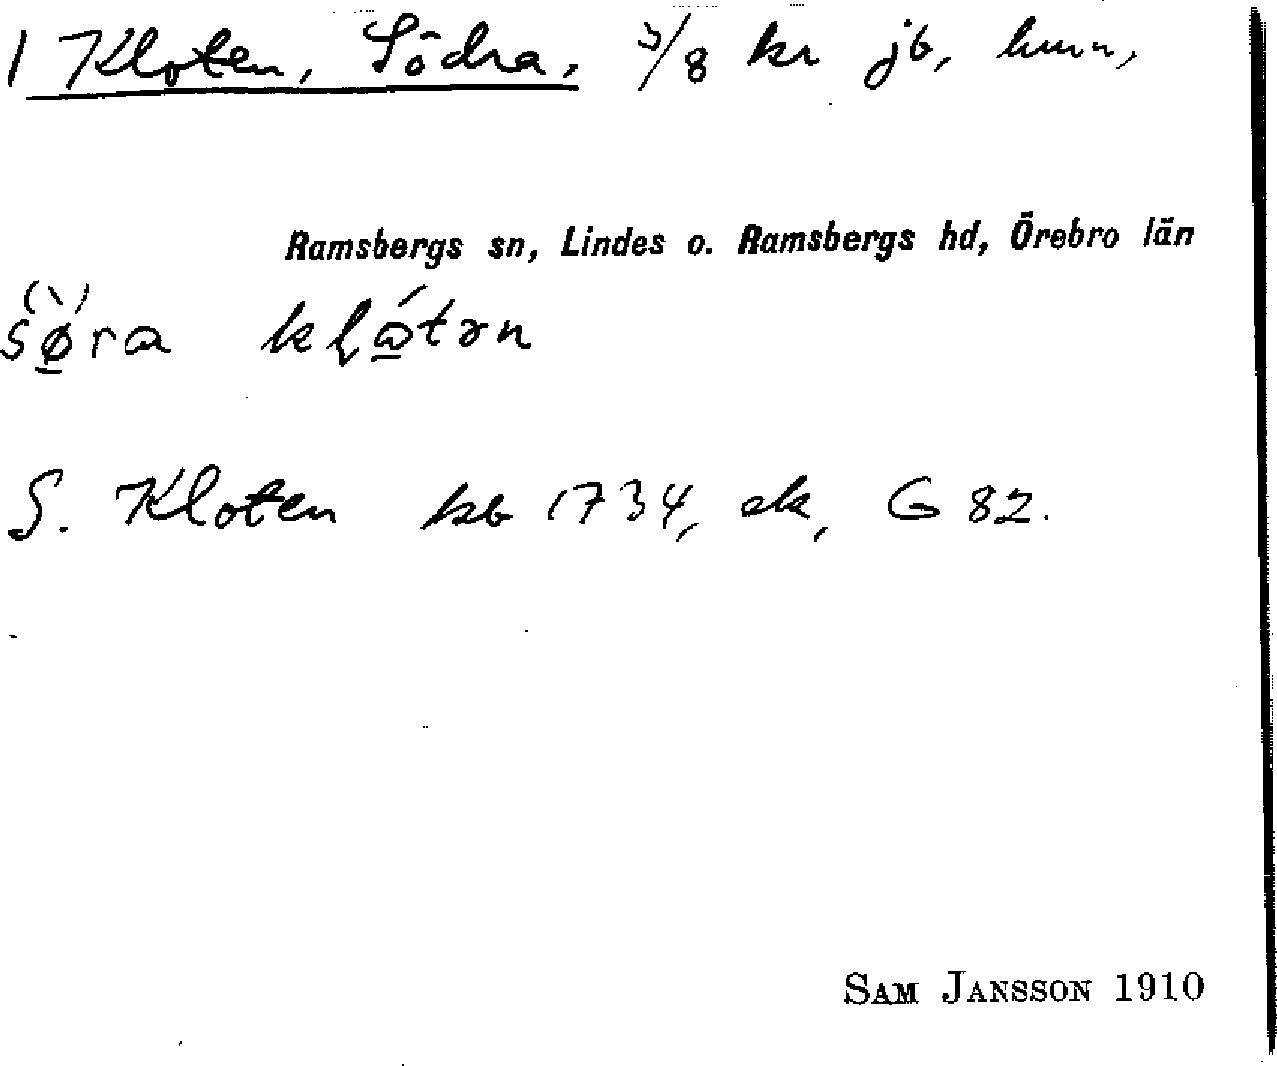 1 Kloten, Södra, 5/8 kr jb, hmn,
Ramsbergs sn, Lindes o. Ramsbergs hd, Örebro län
sø̱(̀)ra kɭώ̱tən
S. Kloten kb 1734, ek, G 82.
SAM JANSSON 1910